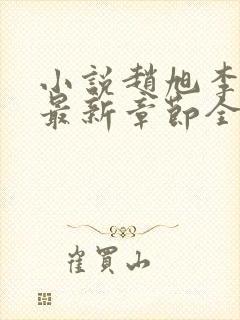 小説趙旭李
最新章節全
崔買山